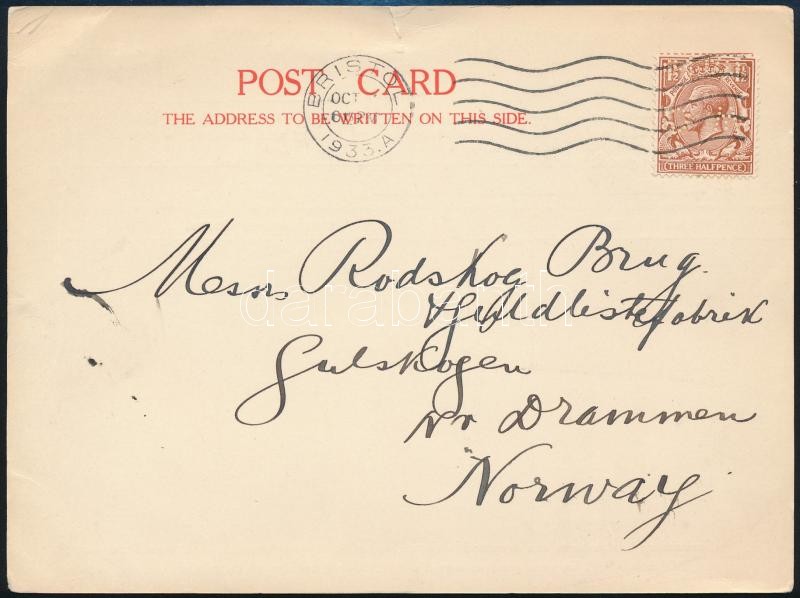 POST CARD
THE ADDRESS TO BE WRITTEN ON THIS SIDE.
BRISTOL
OCT
1933.A
1½ 1½
THREE HALFPENCE
Messrs Rodskog Brug
& Gyldlistefabrik
Gulskogen
nr Drammen
Norway
darabanth